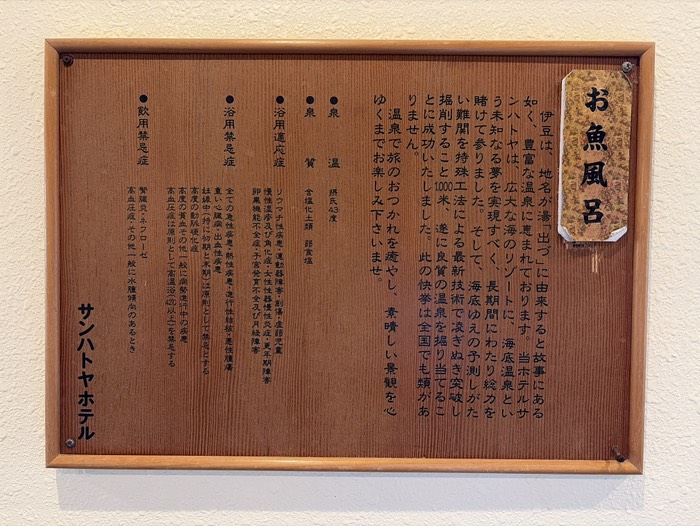 お魚風呂
伊豆は、地名が「湯、出づ」に由来すると故事にある
如く、豊富な温泉に恵まれております。当ホテルサ
ンハトヤは、広大な海のリゾートに、海底温泉とい
う未知なる夢を実現すべく、長期間にわたり総力を
賭けて参りました。そして、海底ゆえの予測しがた
い難関を特殊工法による最新技術で凌ぎぬき突破し
掘削すること1000米、遂に良質の温泉を掘り当てるこ
とに成功いたしました。此の快挙は全国でも類があ
りません。
温泉で旅のおつかれを癒やし、素晴しい景観を心
ゆくまでお楽しみ下さいませ。
●泉温 摂氏43度
●泉質 含塩化土類 弱食塩
●浴用適応症 リウマチ性疾患・運動器障害・創傷・虚弱児童
慢性湿疹及び角化症・女性性器慢性炎症・更年期障害
卵巣機能不全症・子宮発育不全及び月経障害
●浴用禁忌症 全ての急性疾患・熱性疾患・進行性結核・悪性腫瘍
重い心臓病・出血性疾患
妊娠中(特に初期と末期)は原則として禁忌とする
高度の動脈硬化症
高度の貧血その他一般に病勢進行中の疾患
高血圧症は原則として高温浴(42℃以上)を禁忌する
●飲用禁忌症 腎臓炎・ネフローゼ
高血圧症・その他一般に水腫傾向のあるとき
サンハトヤホテル